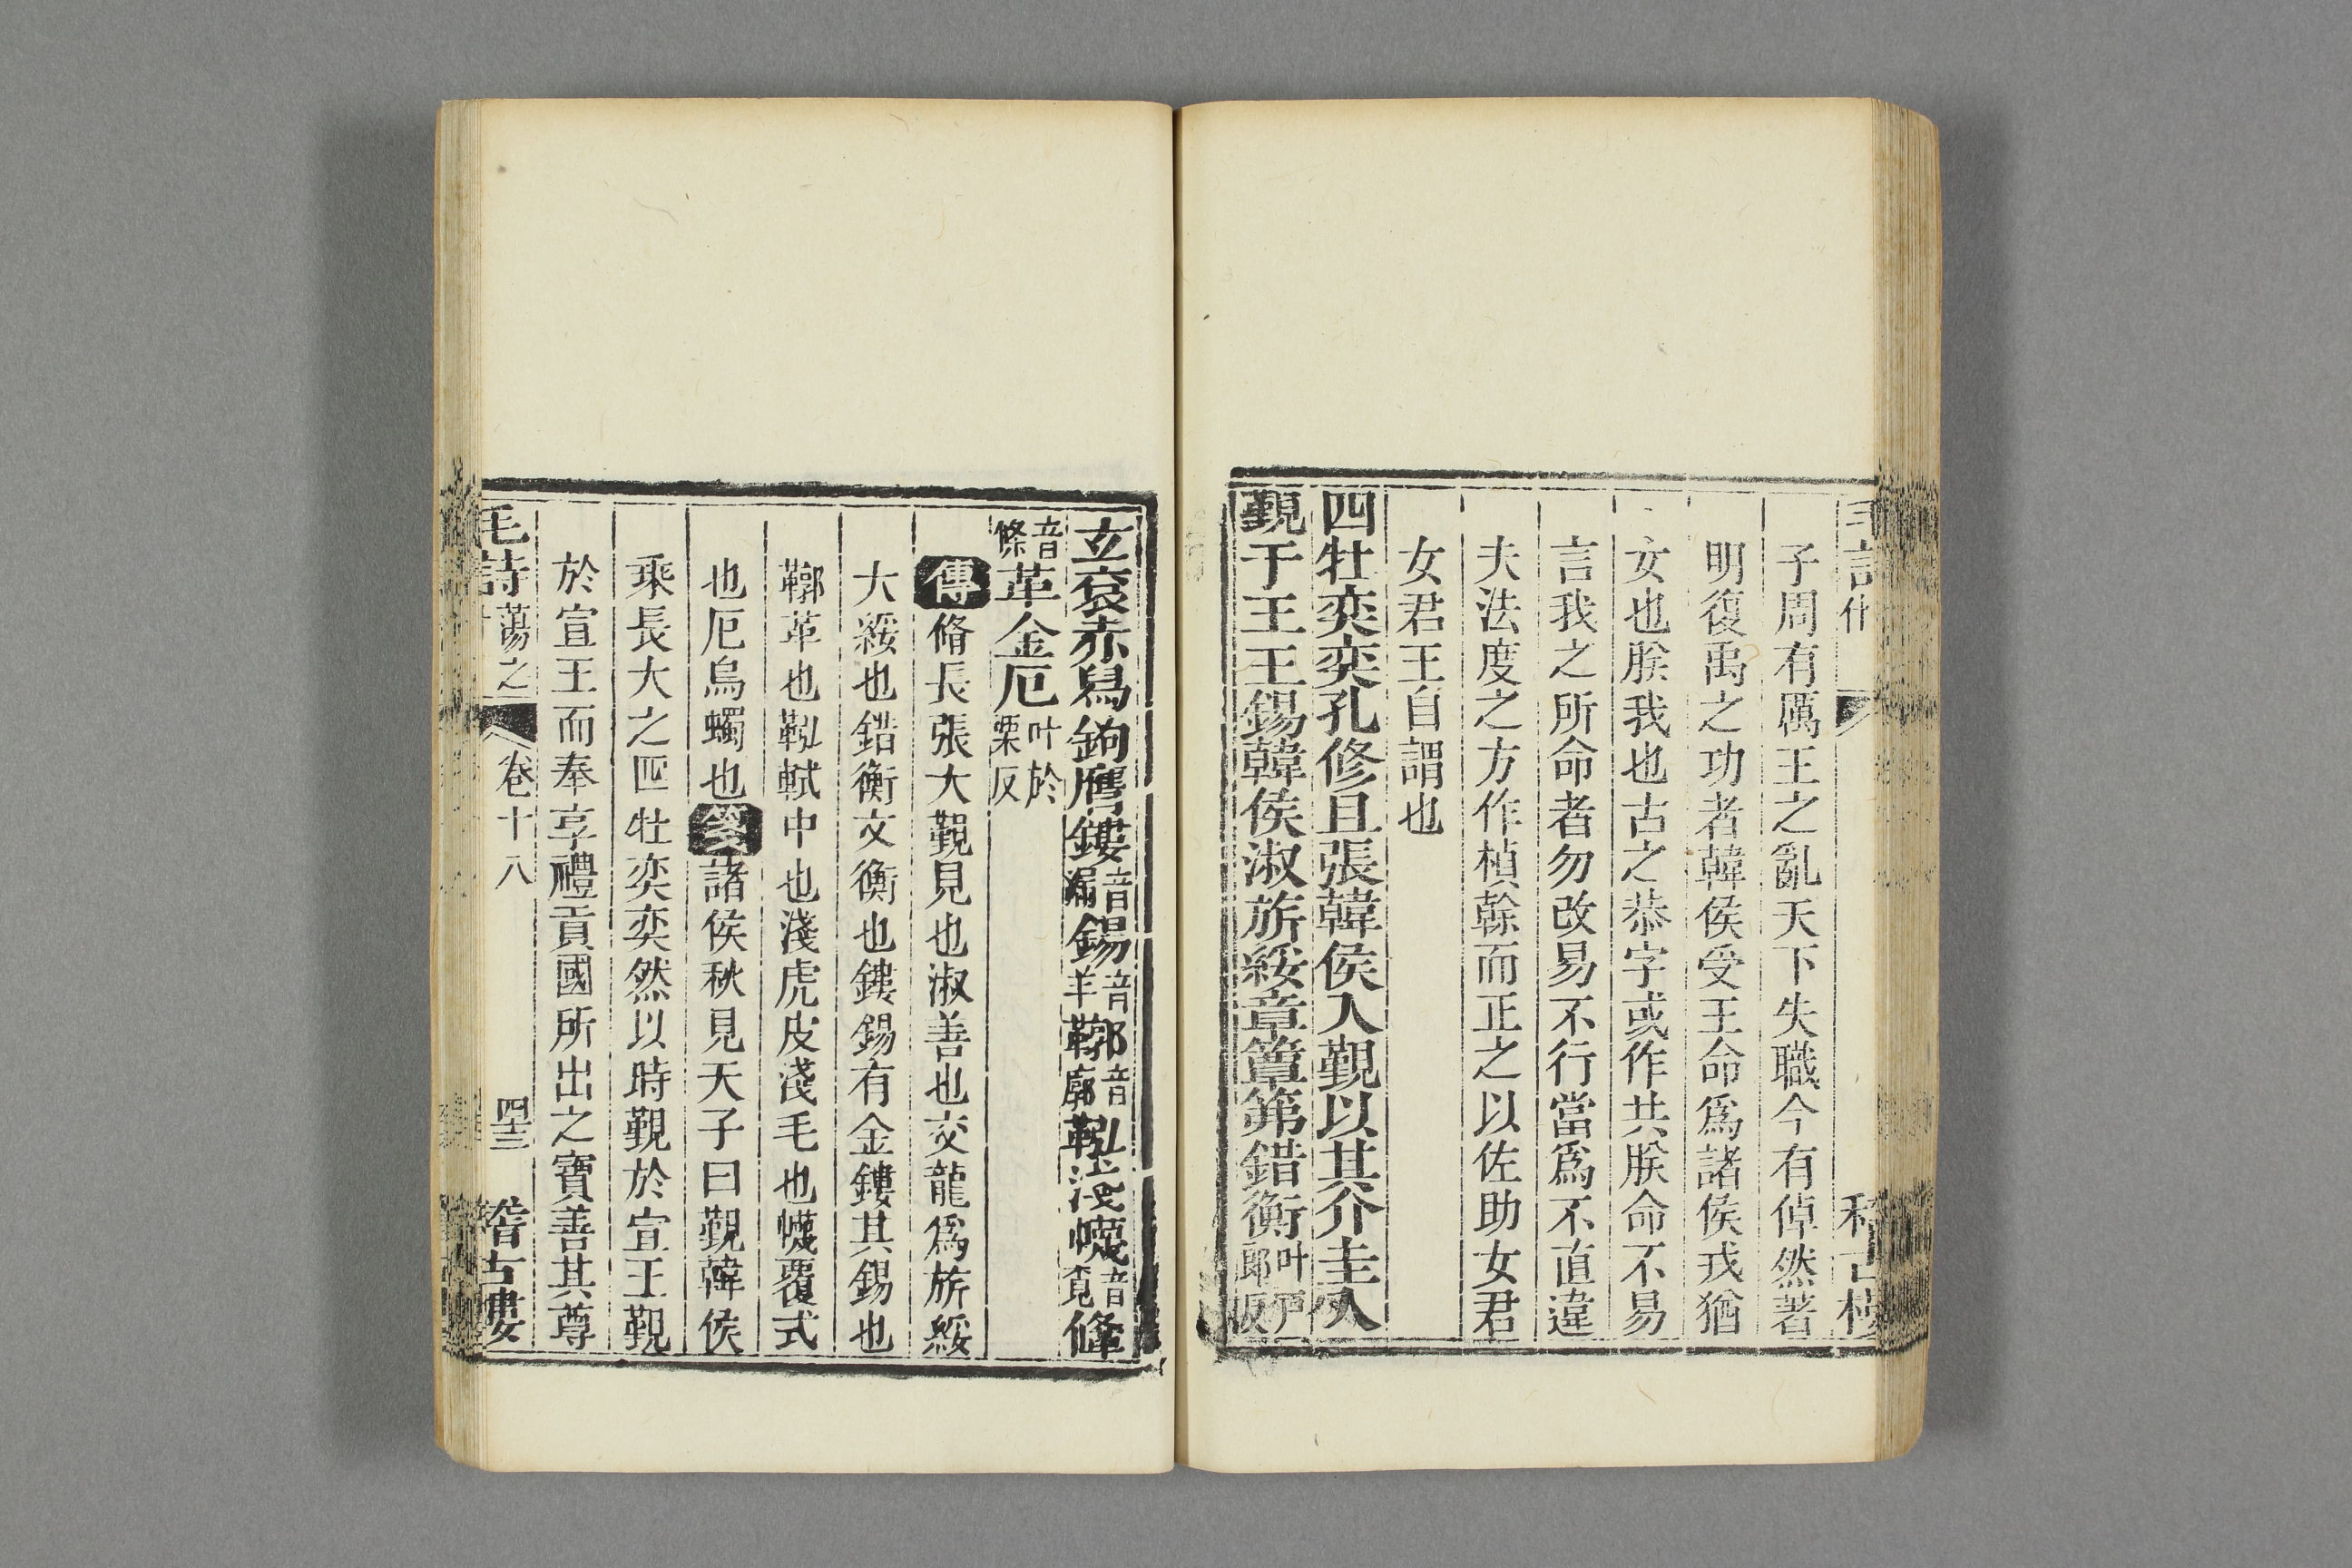 子周有厲王之亂天下失職今有倬然著
明復禹之功者韓侯受王命爲諸侯戎猶
女也朕我也古之恭字或作共朕命不易
言我之所命者勿改易不行當爲不直違
夫法度之方作楨榦而正之以佐助女君
女君王自謂也
四牡奕奕孔修且張韓侯入覲以其介圭入
覲于王王錫韓侯淑旂綏章簟茀錯衡叶戸郎反
玄袞赤舄鉤膺鏤音漏鍚音羊鞹音廓鞃淺幭音覓鞗
音條革金厄叶於栗反
傳脩長張大覲見也淑善也交龍爲旂綏
大綏也錯衡文衡也鏤鍚有金鏤其鍚也
鞹革也鞃軾中也淺虎皮淺毛也幭覆式
也厄烏蠋也箋諸侯秋見天子曰覲韓侯
乘長大之四牡奕奕然以時覲於宣王覲
於宣王而奉享禮貢國所出之寶善其尊
毛詩蕩之 卷十八 四十三 稽古樓